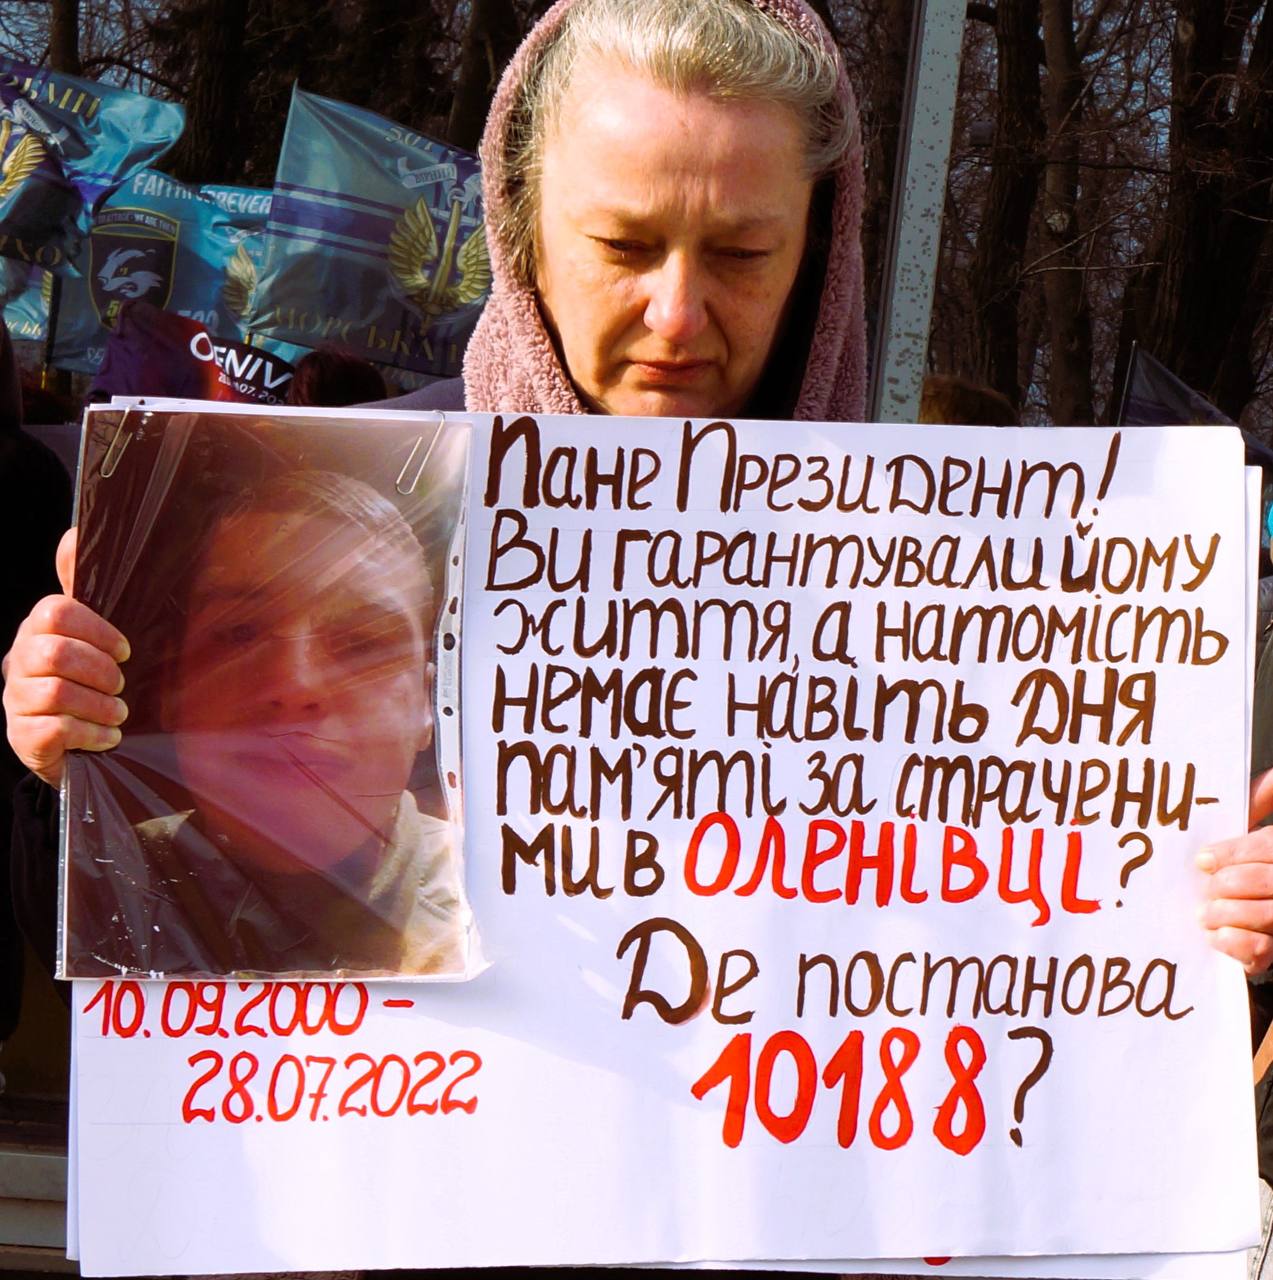 FAITH FOREVER
МОРСЬКА П
OLENIV
Пане Президент!
Ви гарантували йому
життя, а натомість
немає навіть Дня
пам'яті за страчени-
ми в Оленівці?
Де постанова
10188?
10.09.2000 -
28.07.2022